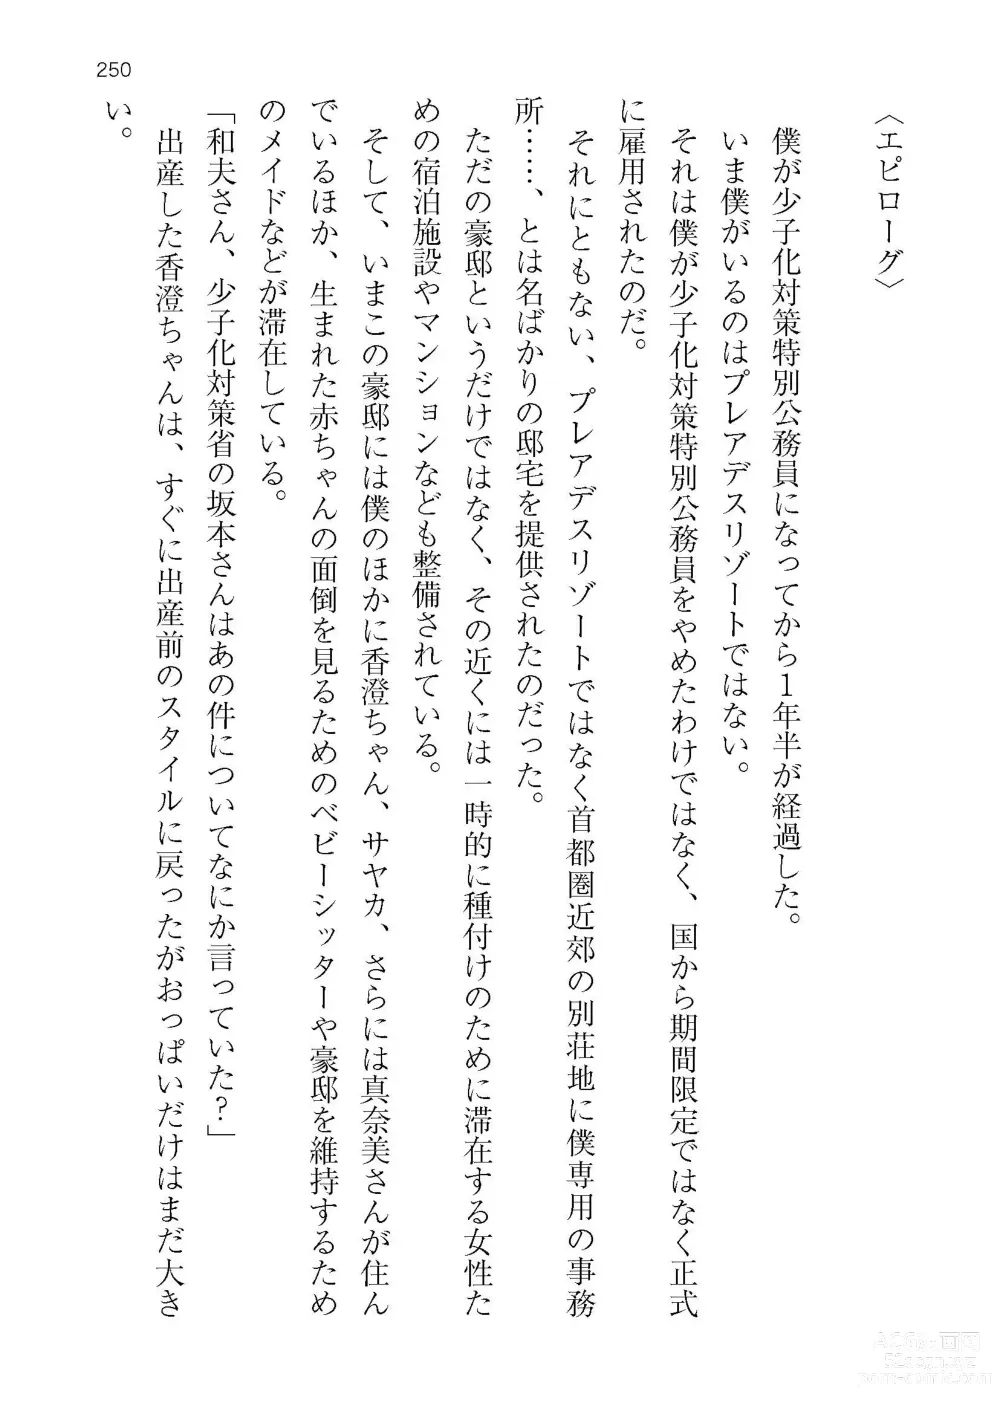 250
〈エピローグ〉
僕が少子化対策特別公務員になってから1年半が経過した。
いま僕がいるのはプレアデスリゾートではない。
それは僕が少子化対策特別公務員をやめたわけではなく、国から期間限定ではなく正式
に雇用されたのだ。
それにともない、プレアデスリゾートではなく首都圏近郊の別荘地に僕専用の事務
所……、とは名ばかりの邸宅を提供されたのだった。
ただの豪邸というだけではなく、その近くには一時的に種付けのために滞在する女性た
めの宿泊施設やマンションなども整備されている。
そして、いまこの豪邸には僕のほかに香澄ちゃん、サヤカ、さらには真奈美さんが住ん
でいるほか、生まれた赤ちゃんの面倒を見るためのベビーシッターや豪邸を維持するため
のメイドなどが滞在している。
「和夫さん、少子化対策省の坂本さんはあの件についてなにか言っていた？」
出産した香澄ちゃんは、すぐに出産前のスタイルに戻ったがおっぱいだけはまだ大き
い。